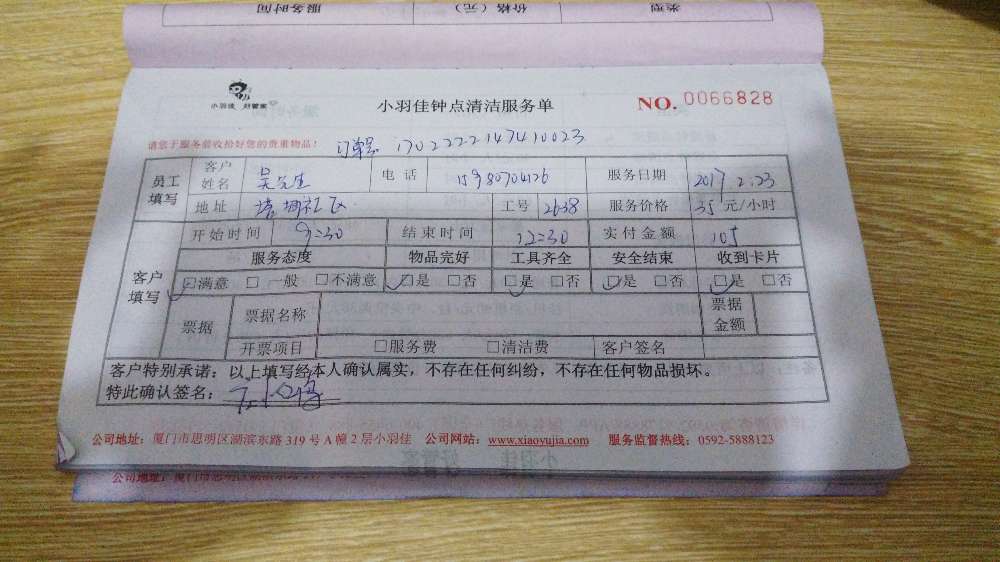 服务时间 价格（元） 类型
小羽佳 好管家
小羽佳钟点清洁服务单
NO. 0066828
请您于服务前收拾好您的贵重物品！ 订单号 1702222147410023
员工填写 客户姓名 吴先生 电话 15980704126 服务日期 2017.2.23
地址 工号 2638 服务价格 35 元/小时
开始时间 9:30 结束时间 12:30 实付金额 105
服务态度 物品完好 工具齐全 安全结束 收到卡片
客户填写 ☑满意 □一般 □不满意 ☑是 □否 ☑是 □否 ☑是 □否 ☑是 □否
票据 票据名称 票据金额
开票项目 □服务费 □清洁费 客户签名
客户特别承诺：以上填写经本人确认属实，不存在任何纠纷，不存在任何物品损坏。
特此确认签名：
公司地址：厦门市思明区湖滨东路 319 号 A 幢 2 层小羽佳 公司网站：www.xiaoyujia.com 服务监督热线：0592-5888123